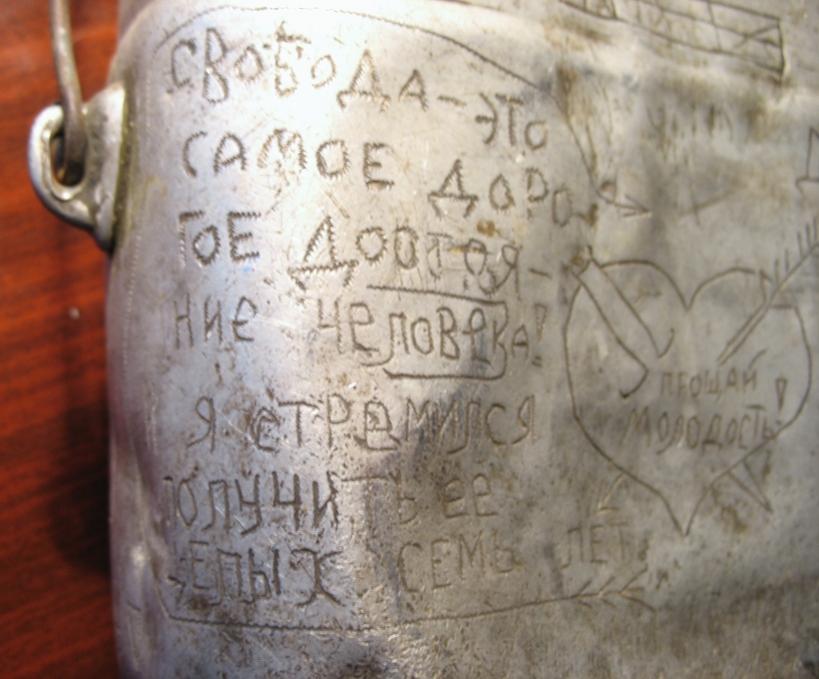 СВОБОДА - ЭТО
САМОЕ ДОРО
ГОЕ ДОСТОЯ-
НИЕ ЧЕЛОВЕКА!
Я СТРЕМИЛСЯ
ПОЛУЧИТЬ ЕЕ
ЦЕЛЫХ СЕМЬ ЛЕТ.
ПРОЩАЙ
МОЛОДОСТЬ!